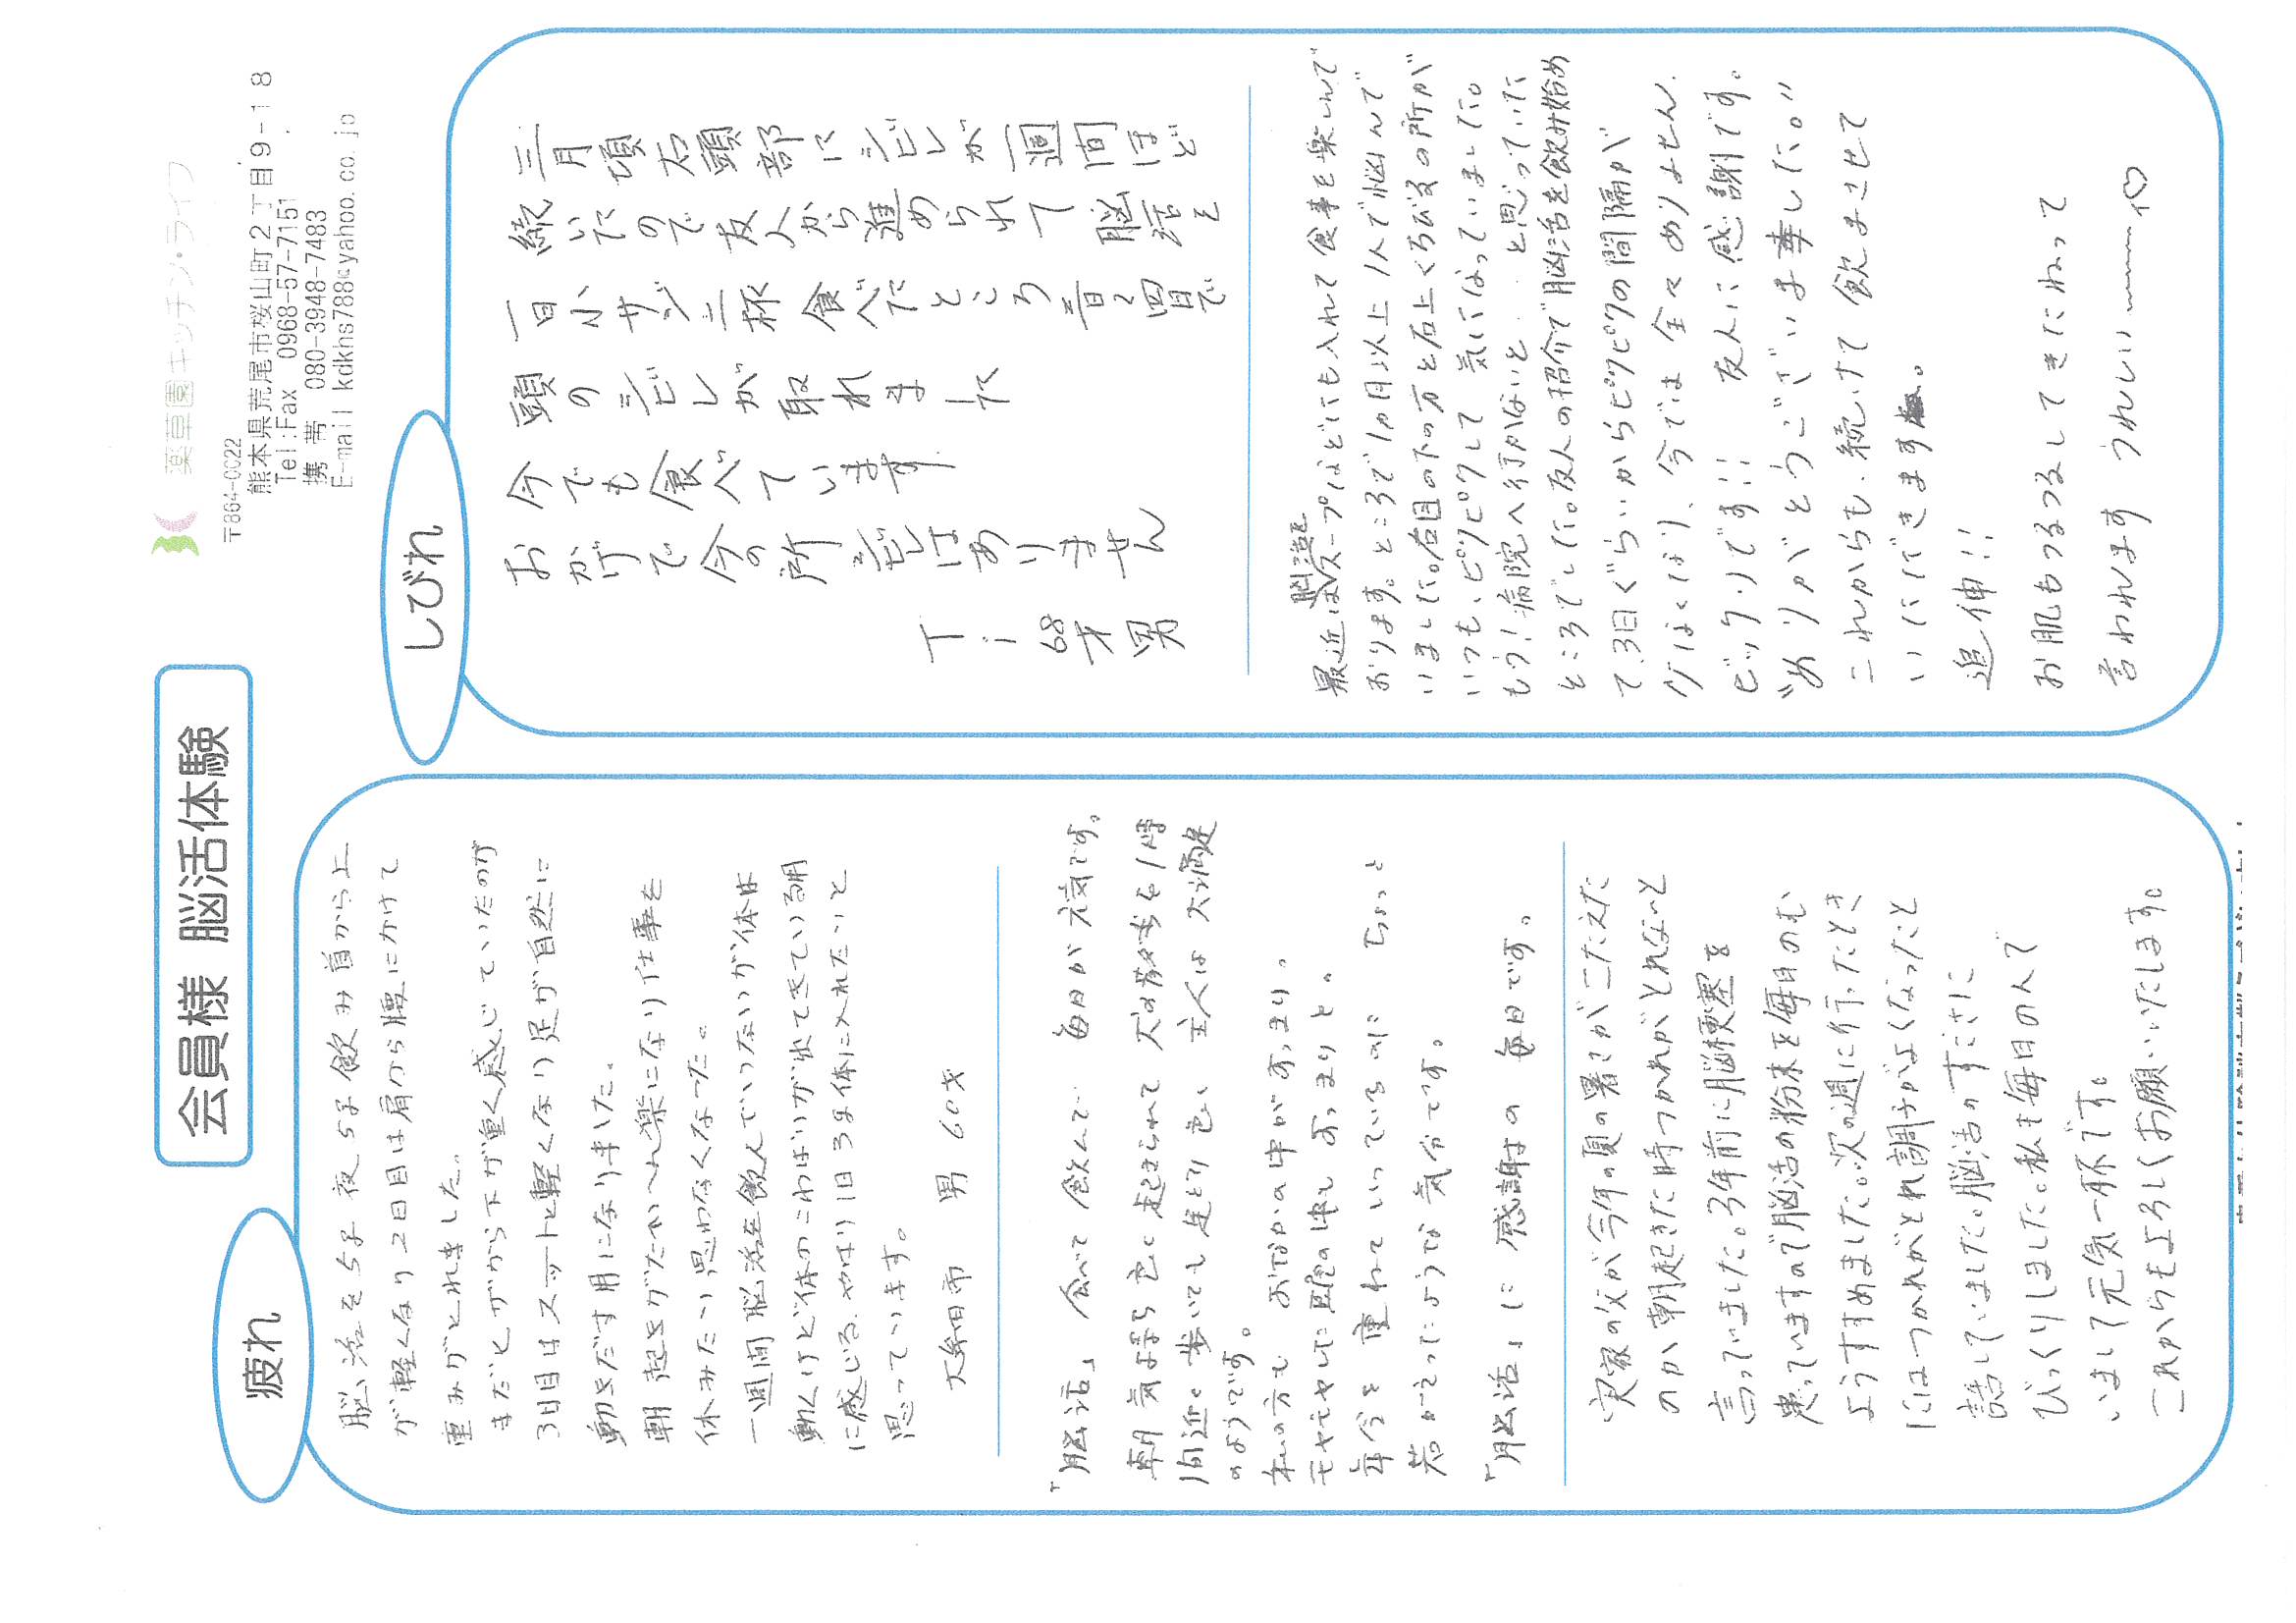 会員様 脳活体験
薬草園キッチン・ライフ
〒864-0022
熊本県荒尾市桜山町2丁目9-18
Tel:Fax 0968-57-7151
携帯 080-3948-7483
E-mail kdkhs788@yahoo.co.jp
疲れ
脳活を5g 夜5g飲み首から上
が軽くなり2日目は肩から腰にかけて
重みがとれました。
まだヒザから下が重く感じていたのが
3日目はスーットと軽くなり足が自然に
動きだす用になりました。
朝 起きがたいへん楽になり仕事を
休みたい思わなくなった。
一週間脳活を飲んでいないが体は
動くけど体のこわばりが出てきている用
に感じる、やはり1日3g体に入れたいと
思っています。
大牟田市 男 60才
「脳活」食べて 飲んで 毎日が元気です。
朝 気持ち良く起きられて 犬の散歩も1時
間近く歩いても足どり良く 主人は大満足
のようです。
私の方も おなかの中がすっきり。
モヤモヤした頭の中も すっきりと。
年令を 重ねていっているのに ちょっと
若がえったような気分です。
「脳活」に 感謝の 毎日です。
実家の父が今年の夏の暑さがこたえた
のか朝起きた時つかれがとれないと
言っていました。3年前に脳梗塞を
患っていますので脳活の粉末を毎日のむ
ようすすめました。次の週に行ったとき
にはつかれがとれ調子がよくなったと
話していました。脳活のすごさに
びっくりしました。私も毎日のんで
いまして元気一杯です。
これからもよろしくお願いいたします。
しびれ
三月頃右頭部にシビレが一週間ほど
続いたので友人から進められて 脳活を
一日小サジ三杯食べたところ 二日目で
頭のシビレが取れました
今でも食べています
おかげで今の所シビレはありません
T.i 68才 男
最近は脳活をスープなどにも入れて食事を楽しんで
おります。ところで1カ月以上1人で悩んで
いました。右目の下の方と右上くちびるの所が
いつも、ピクピクして 気になっていました。
もう!病院へ行かないと・・と思っていた
ところでした。友人の招介で脳活を飲み始め
て、3日ぐらいからピクピクの間隔が
なくなり、今では 全々ありません
ビックリです!! 友人に感謝です。
“ありがとうございま事した。”
これからも、続けて 飲ませて
いただきます。
追伸!!
お肌もつるつるしてきたねって
言われます うれしい〜♡